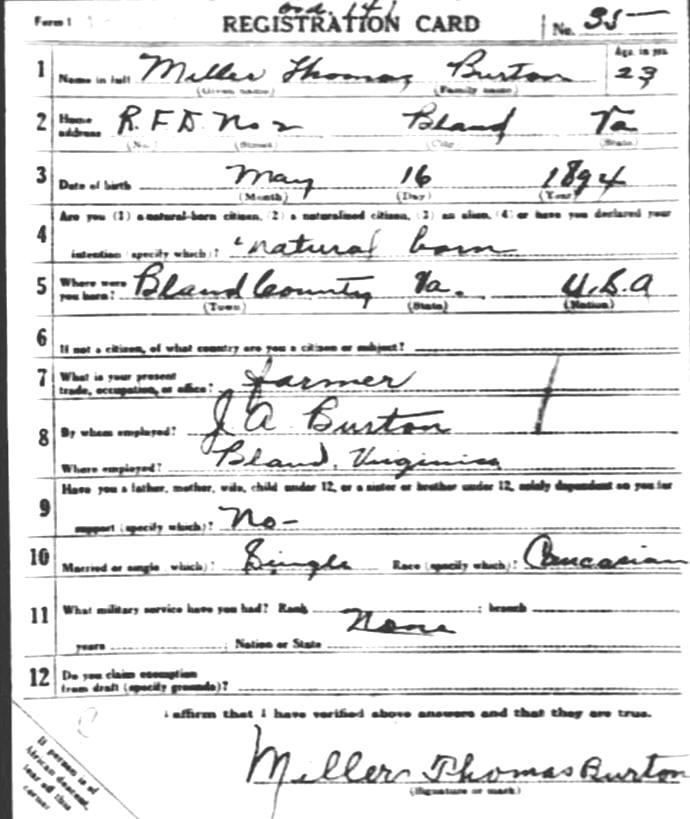 Form 1
REGISTRATION CARD No. 35
1 Name in full Miller Thomas Burton Age, in yrs. 23
(Given name) (Family name)
2 Home address R.F.D. No 2 Bland Va
(No.) (Street) (City) (State)
3 Date of birth May 16 1894
(Month) (Day) (Year)
Are you (1) a natural-born citizen, (2) a naturalized citizen, (3) an alien, (4) or have you declared your
4 intention (specify which)? natural born
5 Where were you born? Bland County Va. U.S.A
(Town) (State) (Nation)
6 If not a citizen, of what country are you a citizen or subject?
7 What is your present trade, occupation, or office? farmer
8 By whom employed? J A Burton
Where employed? Bland, Virginia
Have you a father, mother, wife, child under 12, or a sister or brother under 12, solely dependent on you for
9 support (specify which)? No -
10 Married or single (which)? Single Race (specify which)? Caucasian
11 What military service have you had? Rank ; branch
None
years ; Nation or State
12 Do you claim exemption from draft (specify grounds)?
I affirm that I have verified above answers and that they are true.
Miller Thomas Burton
(Signature or mark)
If person is of
African descent,
tear off this
corner